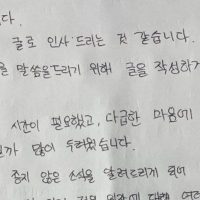 다.
글로 인사드리는 것 같습니다.
말씀을드리기 위해 글을 작성하
시간이 필요했고, 다급한 마음에
많이 두려웠습니다.
좋지 않은 소식을 알려드리게 되어